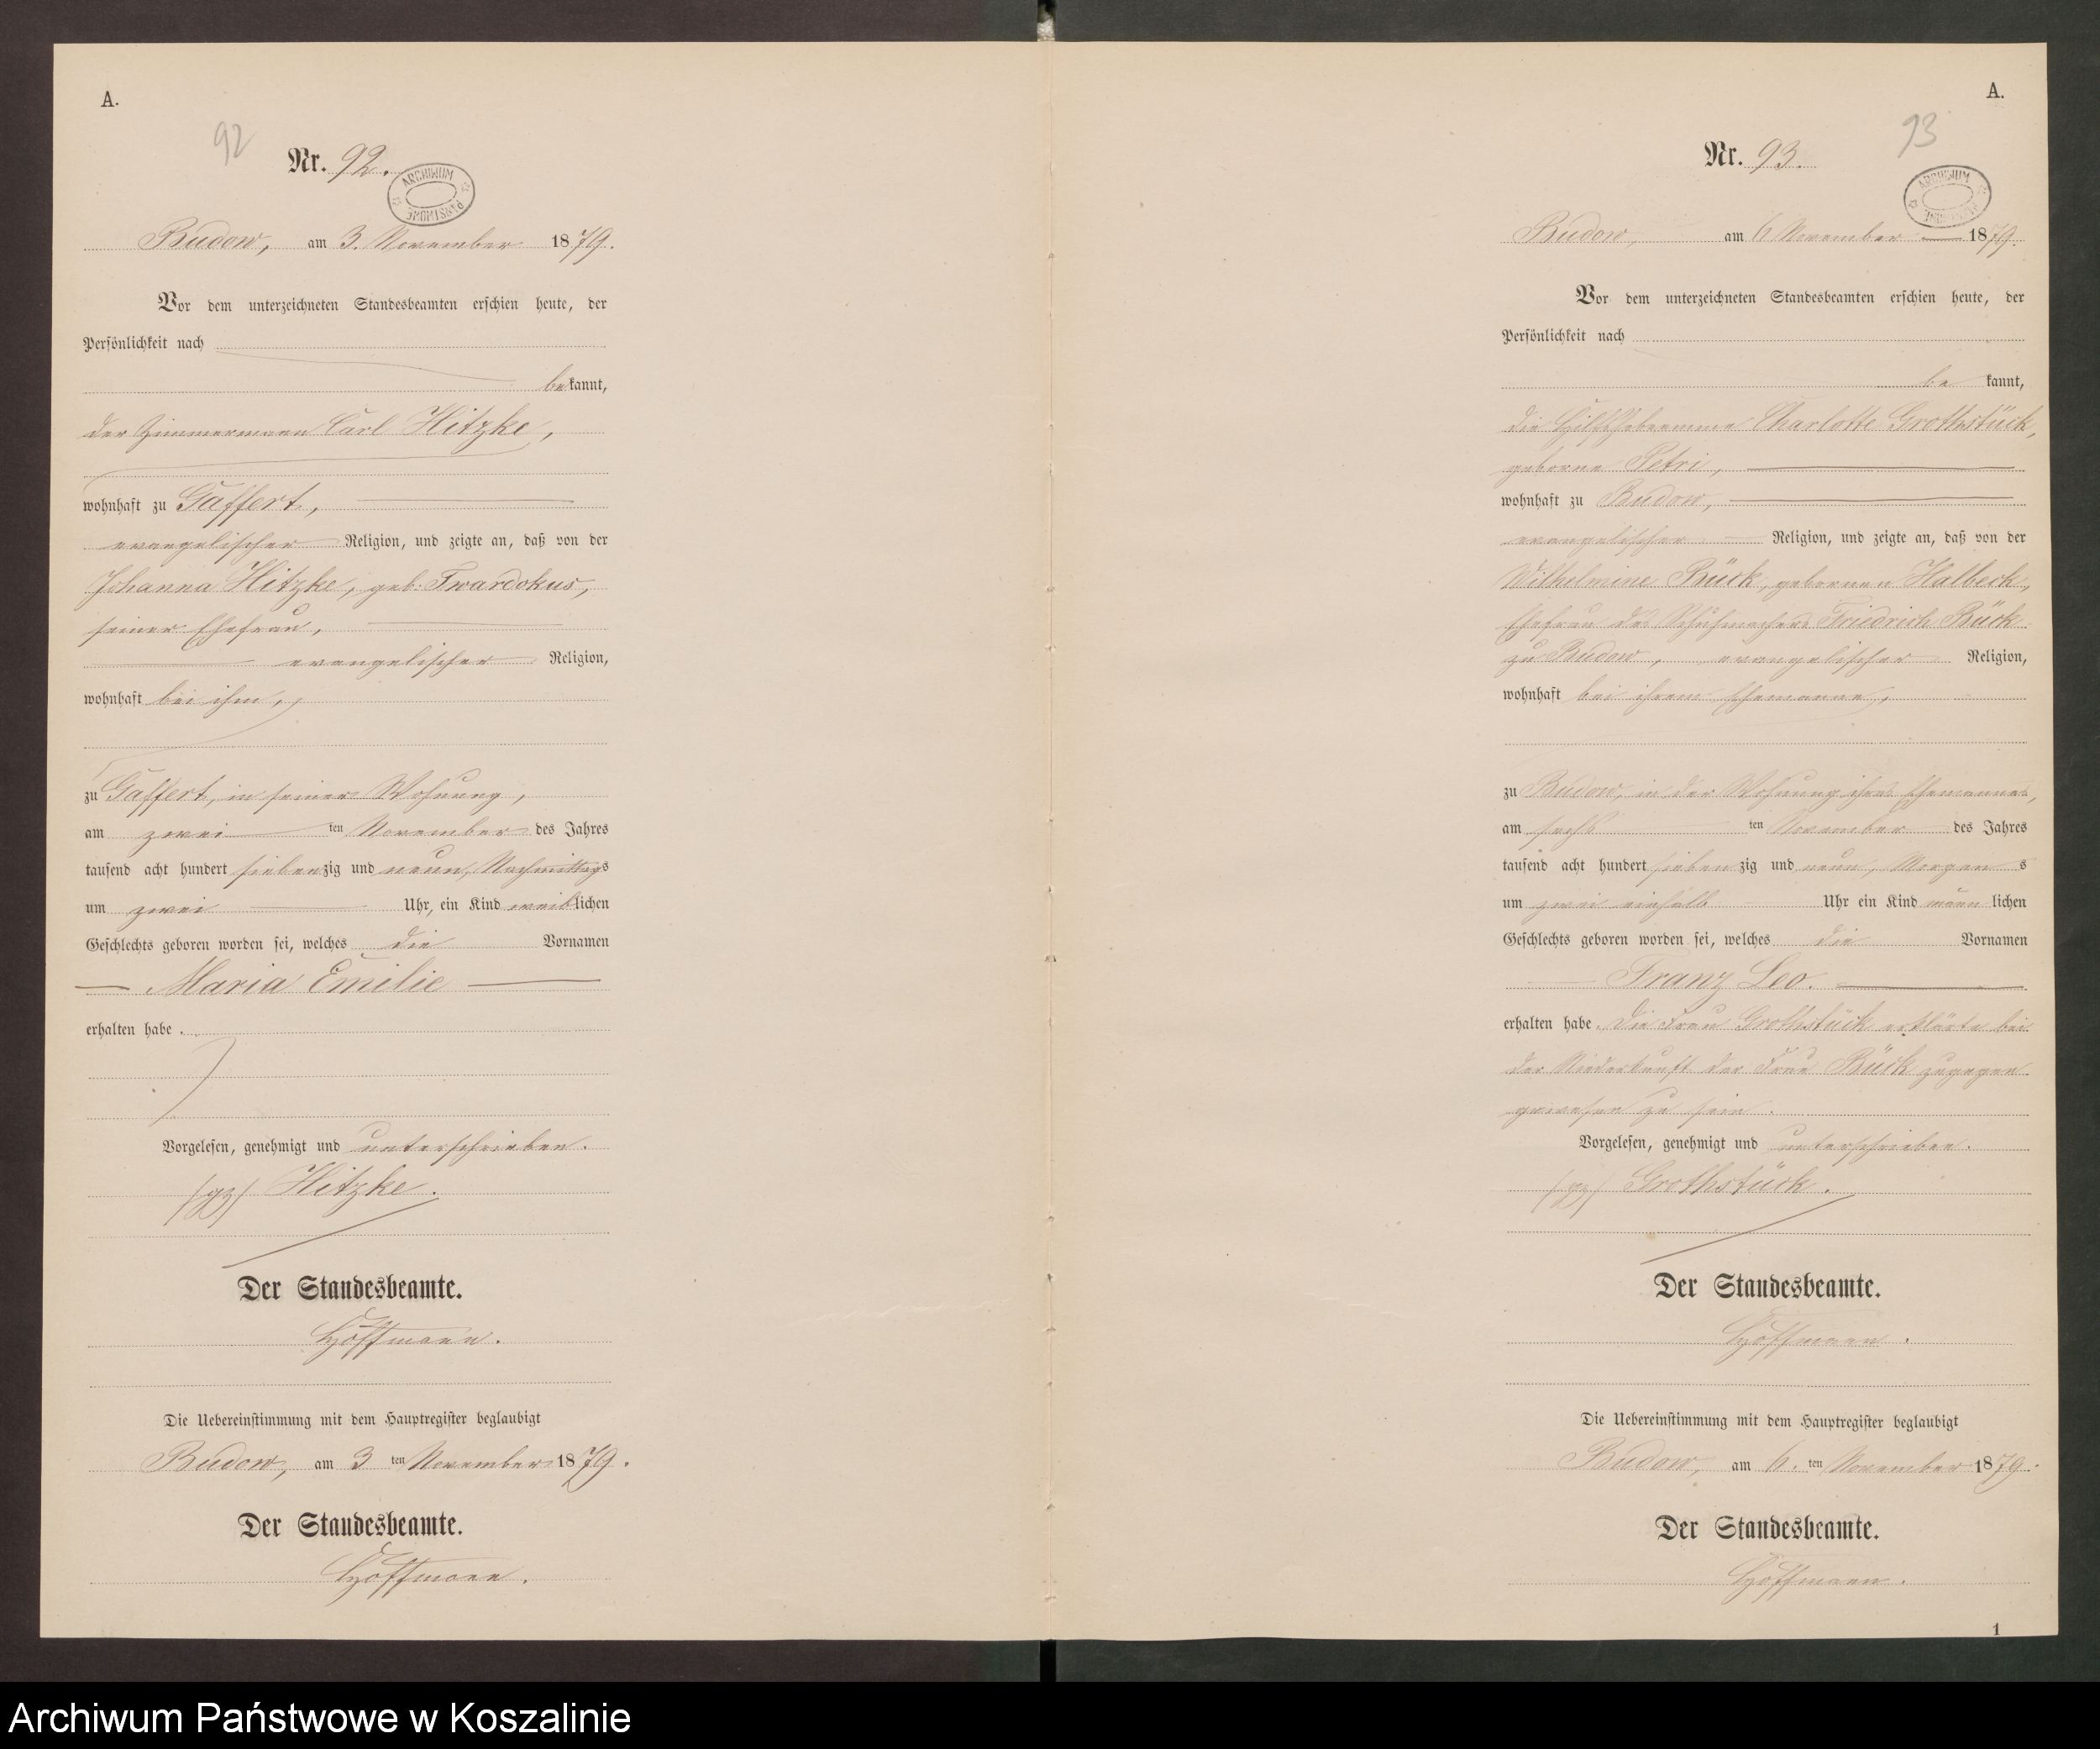 A.
92
Nr. 92.
ARCHIWUM PAŃSTWOWE
Budow, am 3. November 1879.
Vor dem unterzeichneten Standesbeamten erschien heute, der
Persönlichkeit nach
bekannt,
der Zimmermann Carl Hitzke,
wohnhaft zu Gaffert,
evangelischer Religion, und zeigte an, daß von der
Johanna Hitzke, geb. Twardokus,
seiner Ehefrau,
evangelischer Religion,
wohnhaft bei ihm,
zu Gaffert, in seiner Wohnung,
am zwei ten November des Jahres
tausend acht hundert siebenzig und neun, Nachmittags
um zwei Uhr, ein Kind weiblichen
Geschlechts geboren worden sei, welches die Vornamen
Maria Emilie
erhalten habe.
Vorgelesen, genehmigt und unterschrieben.
(gz) Hitzke.
Der Standesbeamte.
Hoffmann.
Die Uebereinstimmung mit dem Hauptregister beglaubigt
Budow, am 3 ten November 1879.
Der Standesbeamte.
Hoffmann.
A.
93
Nr. 93.
ARCHIWUM PAŃSTWOWE
Budow, am 6 November 1879.
Vor dem unterzeichneten Standesbeamten erschien heute, der
Persönlichkeit nach
bekannt,
die Hilfshebeamme Charlotte Grothstück,
geborne Petri,
wohnhaft zu Budow,
evangelischer Religion, und zeigte an, daß von der
Wilhelmine Rück, gebornen Halbeck,
Ehefrau des Schuhmachers Friedrich Rück
zu Budow, evangelischer Religion,
wohnhaft bei ihrem Ehemanne,
zu Budow, in der Wohnung ihres Ehemannes,
am sechs ten November des Jahres
tausend acht hundert siebenzig und neun, Morgens
um zwei einhalb Uhr ein Kind männlichen
Geschlechts geboren worden sei, welches die Vornamen
Franz Leo.
erhalten habe. Die Frau Grothstück erklärte bei
der Niederkunft der Frau Rück zugegen
gewesen zu sein.
Vorgelesen, genehmigt und unterschrieben.
(gz) Grothstück.
Der Standesbeamte.
Hoffmann.
Die Uebereinstimmung mit dem Hauptregister beglaubigt
Budow, am 6. ten November 1879.
Der Standesbeamte.
Hoffmann.
1
Archiwum Państwowe w Koszalinie